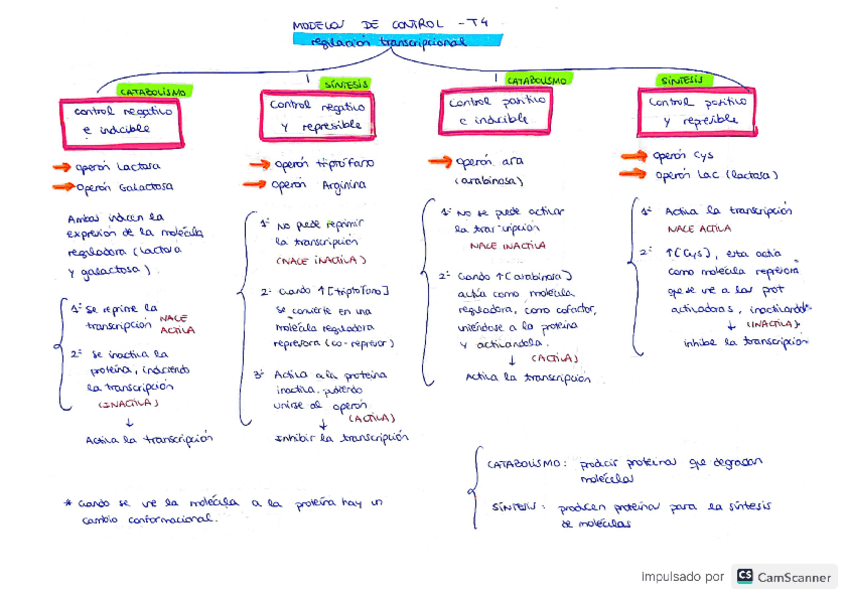 MODELOS DE CONTROL - T4
regulación transcripcional
CATABOLISMO
control negativo
e inducible
→ operón Lactosa
→ Operón Galactosa
Ambos inducen la
expresión de la molécula
reguladora (lactosa
y galactosa).
1º Se reprime la
transcripción NACE
ACTIVA
2º Se inactiva la
proteína, induciendo
la transcripción
(INACTIVA)
↓
Activa la transcripción
SÍNTESIS
control negativo
y represible
→ operón triptófano
→ operón Arginina
1º No puede reprimir
la transcripción
(NACE INACTIVA)
2º Cuando ↑[triptófano]
se convierte en una
molécula reguladora
represora (co-represor)
3º Activa a la proteína
inactiva, pudiendo
unirse al operón
(ACTIVA)
↓
Inhibir la transcripción
CATABOLISMO
control positivo
e inducible
→ operón ara
(arabinosa)
1º No se puede activar
la transcripción
NACE INACTIVA
2º Cuando ↑[arabinosa]
actúa como molécula
reguladora, como cofactor,
uniéndose a la proteína
y activándola.
↓ (ACTIVA)
Activa la transcripción
SÍNTESIS
Control positivo
y represible
→ operón Cys
→ operón Lac (lactosa)
1º Activa la transcripción
NACE ACTIVA
2º ↑[Cys], esta actúa
como molécula represora
que se une a las prot
activadoras, inactivándolas
↓ (INACTIVA)
inhibe la transcripción
CATABOLISMO: producir proteínas que degradan
moléculas
SÍNTESIS: producen proteínas para la síntesis
de moléculas
* Cuando se une la molécula a la proteína hay un
cambio conformacional.
Impulsado por CS CamScanner